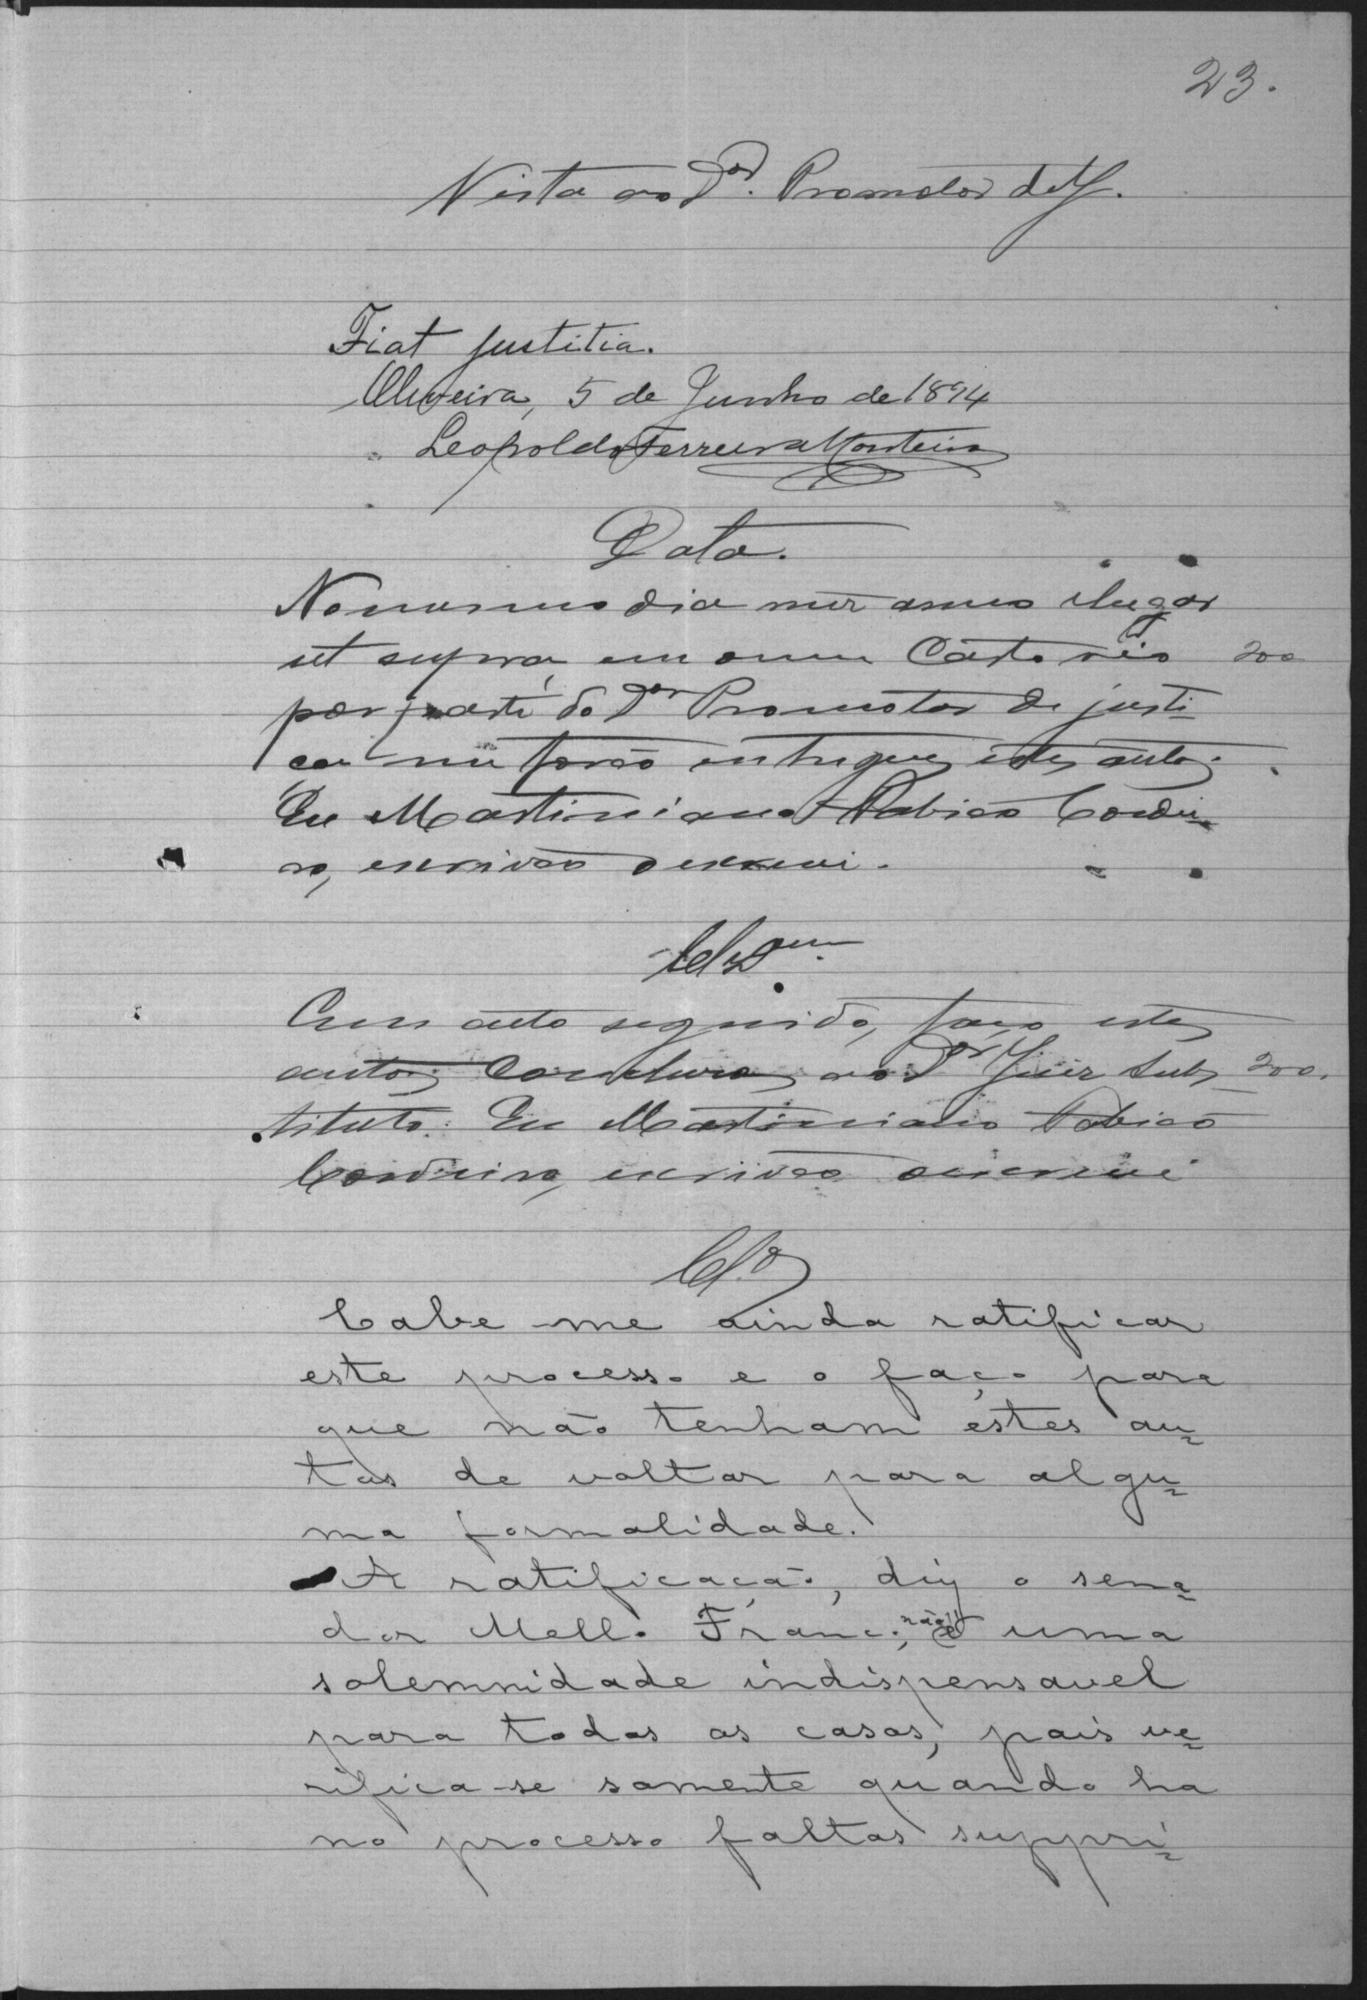 23.
Vista ao Dor. Promotor de J.
Fiat justitia.
Oliveira, 5 de Junho de 1894
Leopoldo Ferreira Monteiro
Data.
No mesmo dia mez anno e lugar
ut supra, em meu Cartorio 200
por parte do Dor Promotor de justi-
ca me forão entregues estes autos.
Eu Martiniano Fabião Cordei-
ro, escrivão o escrevi.
Clsam.
Em acto seguido, faço estes
autos conclusos ao Dor Juiz subs- 200.
tituto. Eu Martiniano Fabião
Cordeiro, escrivão o escrevi
Cls.
Cabe-me ainda ratificar
este processo e o faço para
que não tenham estes au=
tos de voltar para algu=
ma formalidade.
A ratificação, diz o sena=
dor Mello Franco, não é uma
solemnidade indispensavel
para todos os casos, pois ve=
rifica-se somente quando ha
no processo faltas suppri=